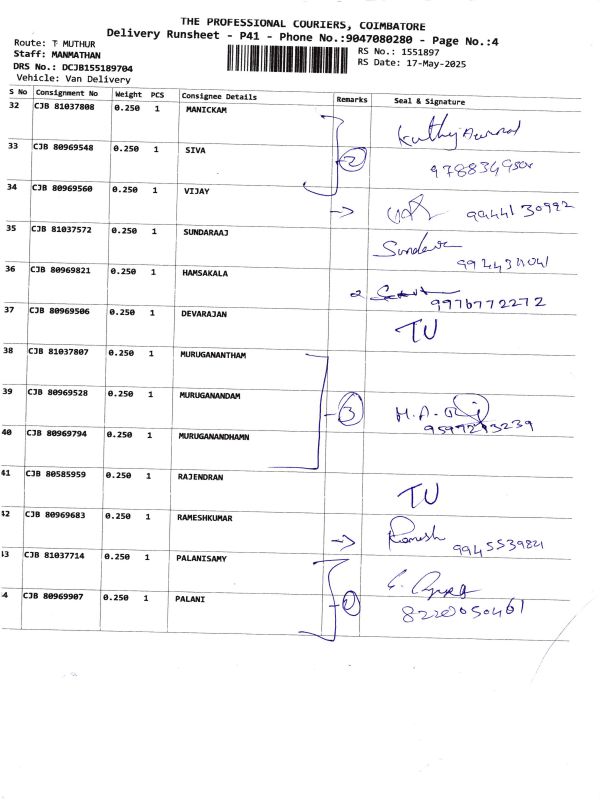 THE PROFESSIONAL COURIERS, COIMBATORE
Delivery Runsheet - P41 - Phone No.:9047080280 - Page No.:4
Route: T MUTHUR
Staff: MANMATHAN
DRS No.: DCJB155189704
Vehicle: Van Delivery
RS No.: 1551897
RS Date: 17-May-2025
S No Consignment No Weight PCS Consignee Details Remarks Seal & Signature
32 CJB 81037808 0.250 1 MANICKAM
33 CJB 80969548 0.250 1 SIVA 2
34 CJB 80969560 0.250 1 VIJAY 9944130992
35 CJB 81037572 0.250 1 SUNDARAAJ
36 CJB 80969821 0.250 1 HAMSAKALA 9976772272
37 CJB 80969506 0.250 1 DEVARAJAN TU
38 CJB 81037807 0.250 1 MURUGANANTHAM
39 CJB 80969528 0.250 1 MURUGANANDAM 3
9597293239
40 CJB 80969794 0.250 1 MURUGANANDHAMN
41 CJB 80585959 0.250 1 RAJENDRAN TU
42 CJB 80969683 0.250 1 RAMESHKUMAR Ramesh
13 CJB 81037714 0.250 1 PALANISAMY
4 CJB 80969907 0.250 1 PALANI 8220050461